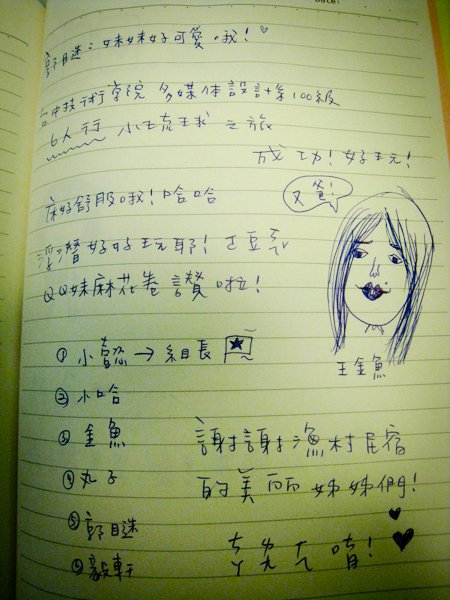 Date:
郭瞇：妹妹好可愛哦！
台中技術學院 多媒体設計系100級
6人行 小琉球之旅
成功！好玩！
床好舒服哦！哈哈
又爸！
浮潛好好玩耶！
QQ妹麻花卷 讚啦！
① 小懿→組長
王金魚
② 小哈
③ 金魚
謝謝漁村民宿
④ 丸子
的美丽姊姊們！
⑤ 郭瞇
⑥ 毅軒